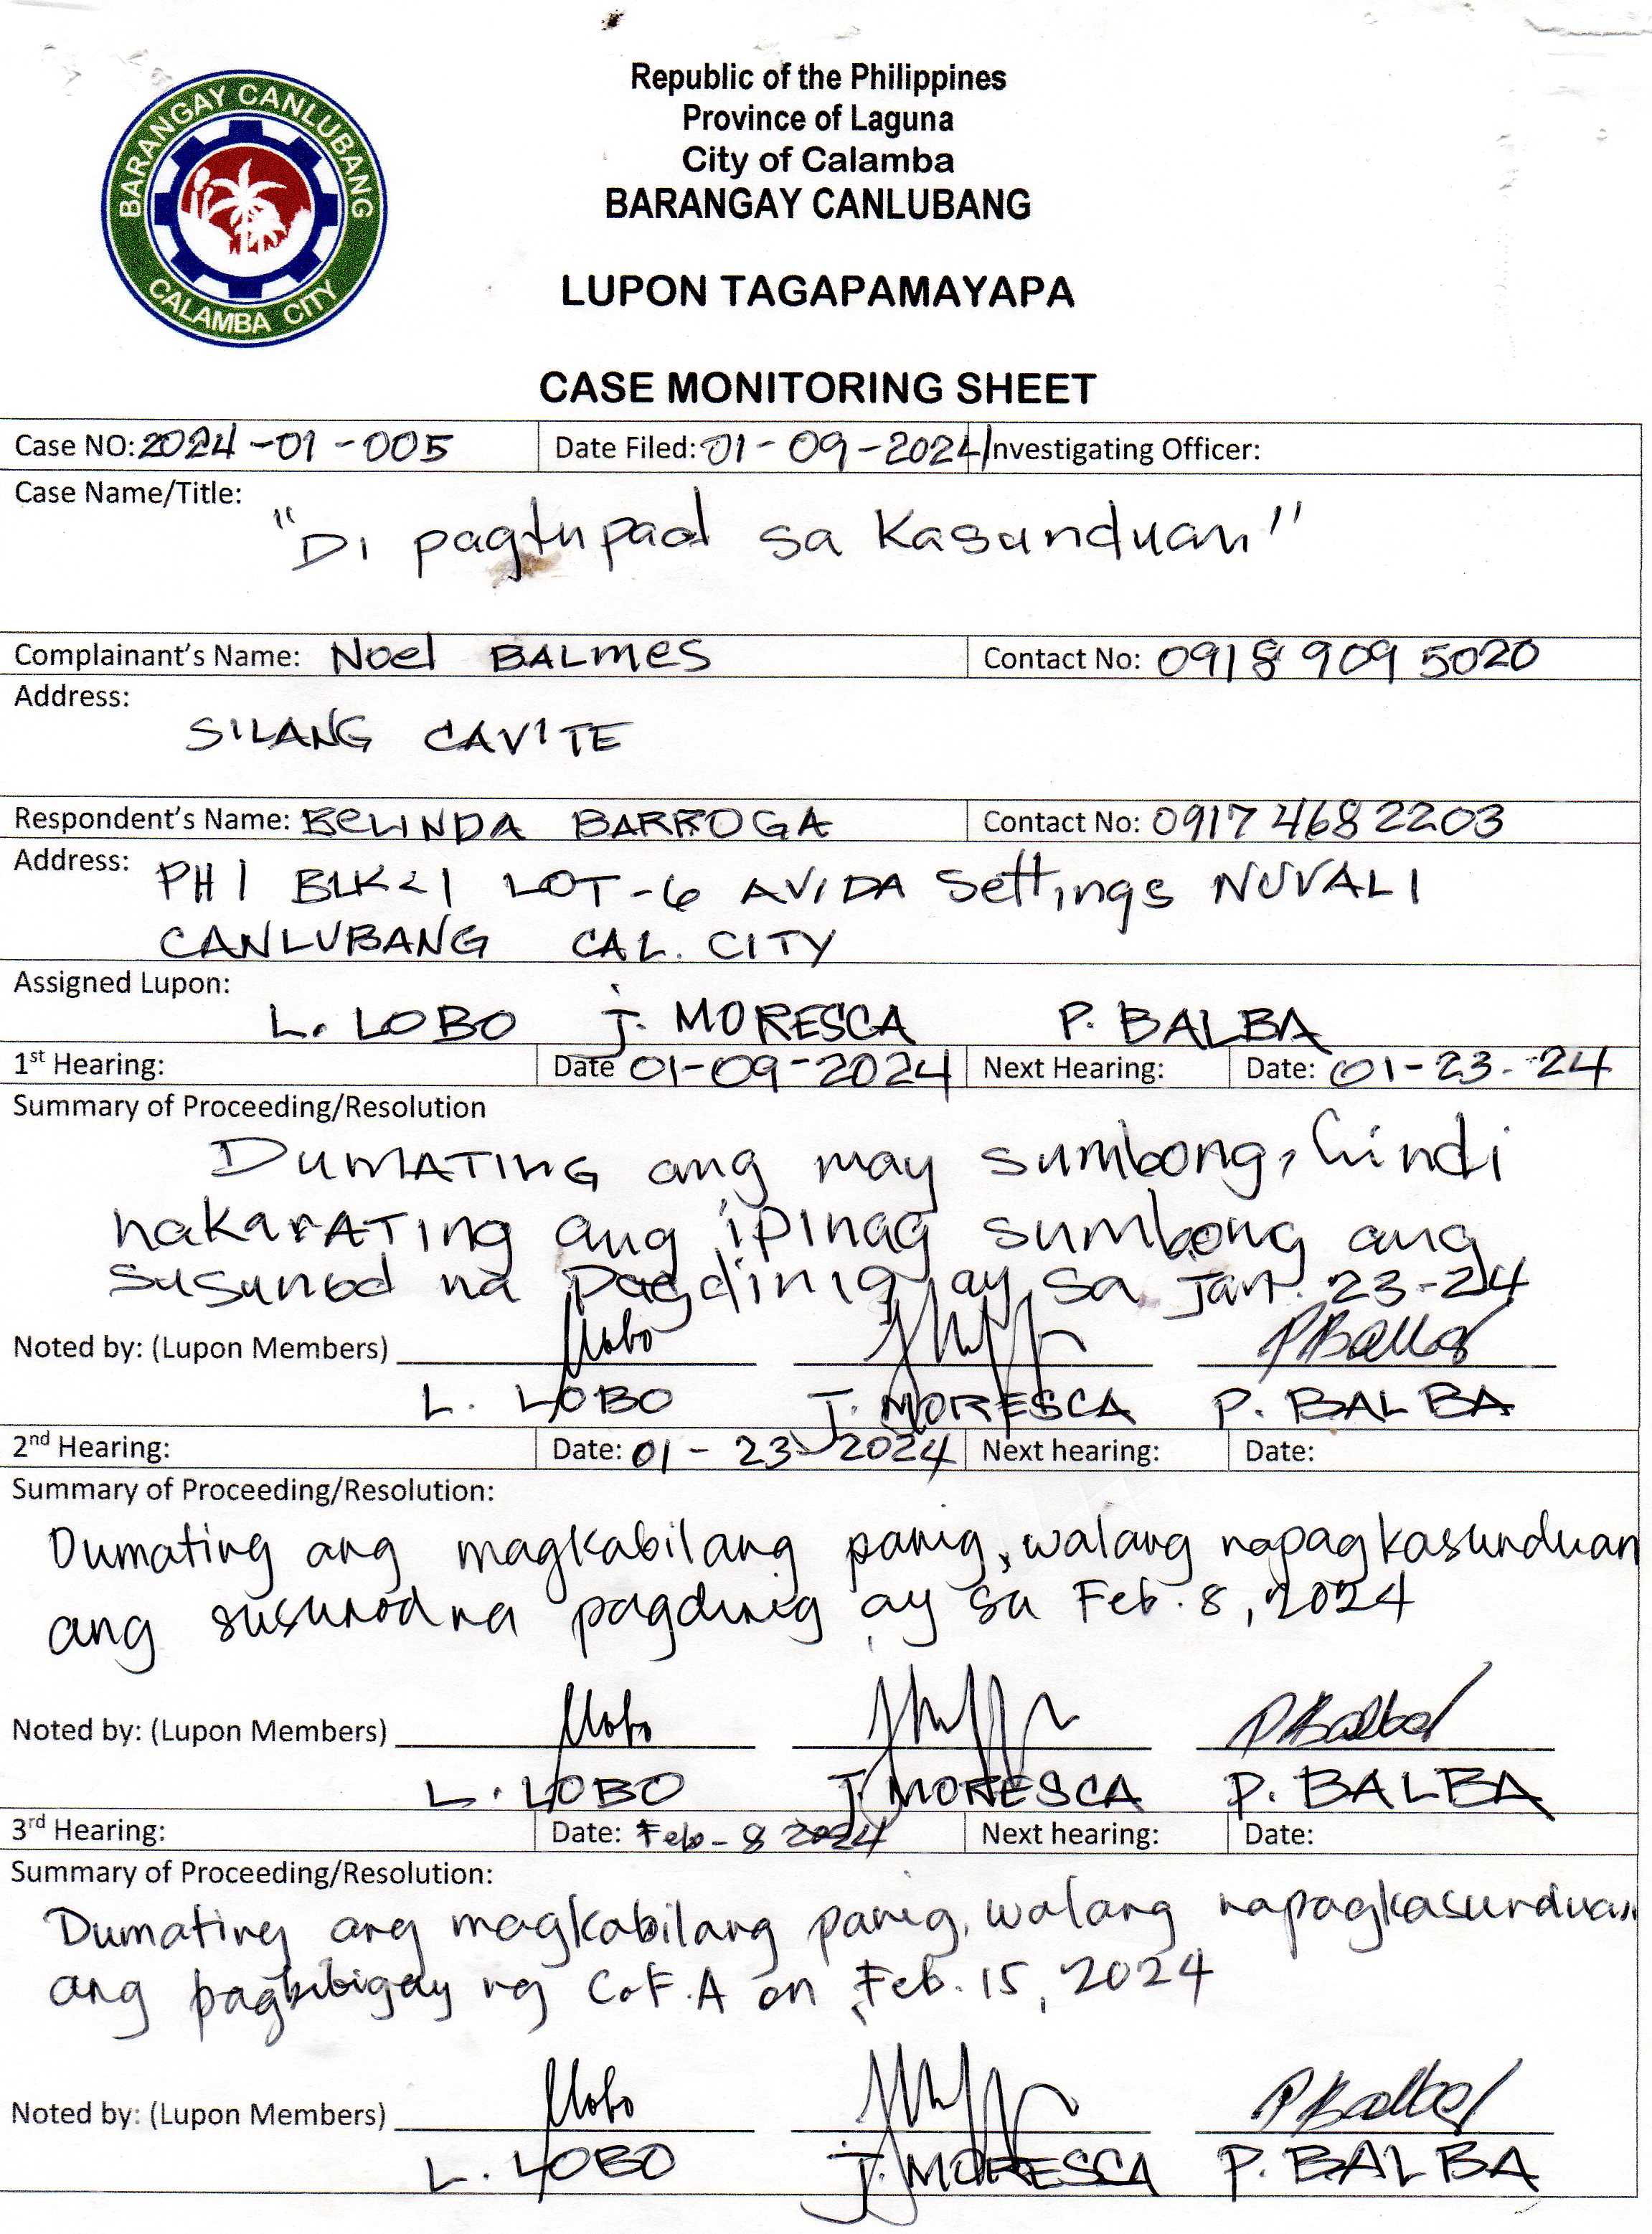 BARANGAY CANLUBANG
CALAMBA CITY
Republic of the Philippines
Province of Laguna
City of Calamba
BARANGAY CANLUBANG
LUPON TAGAPAMAYAPA
CASE MONITORING SHEET
Case NO: 2024-01-005 Date Filed: 01-09-2024 Investigating Officer:
Case Name/Title:
"Di pagtupad sa Kasunduan"
Complainant's Name: Noel BALMES Contact No: 0918 909 5020
Address:
SILANG CAVITE
Respondent's Name: BELINDA BARROGA Contact No: 0917 468 2203
Address: PH 1 BLK21 LOT-6 AVIDA Settings NUVALI
CANLUBANG CAL. CITY
Assigned Lupon:
L. LOBO J. MORESCA P. BALBA
1st Hearing: Date 01-09-2024 Next Hearing: Date: 01-23-24
Summary of Proceeding/Resolution
DUMATING ang may sumbong, hindi
nakarATing ang ipinag sumbong ang
susunod na pagdinig ay sa Jan. 23-24
Noted by: (Lupon Members)
L. LOBO J. MORESCA P. BALBA
2nd Hearing: Date: 01-23-2024 Next hearing: Date:
Summary of Proceeding/Resolution:
Dumating ang magkabilang panig, walang napagkasunduan
ang susunod na pagdinig ay sa Feb. 8, 2024
Noted by: (Lupon Members)
L. LOBO J. MORESCA P. BALBA
3rd Hearing: Date: Feb-8 2024 Next hearing: Date:
Summary of Proceeding/Resolution:
Dumating ang magkabilang panig, walang napagkasunduan
ang pagbibigay ng C.F.A on Feb. 15, 2024
Noted by: (Lupon Members)
L. LOBO J. MORESCA P. BALBA